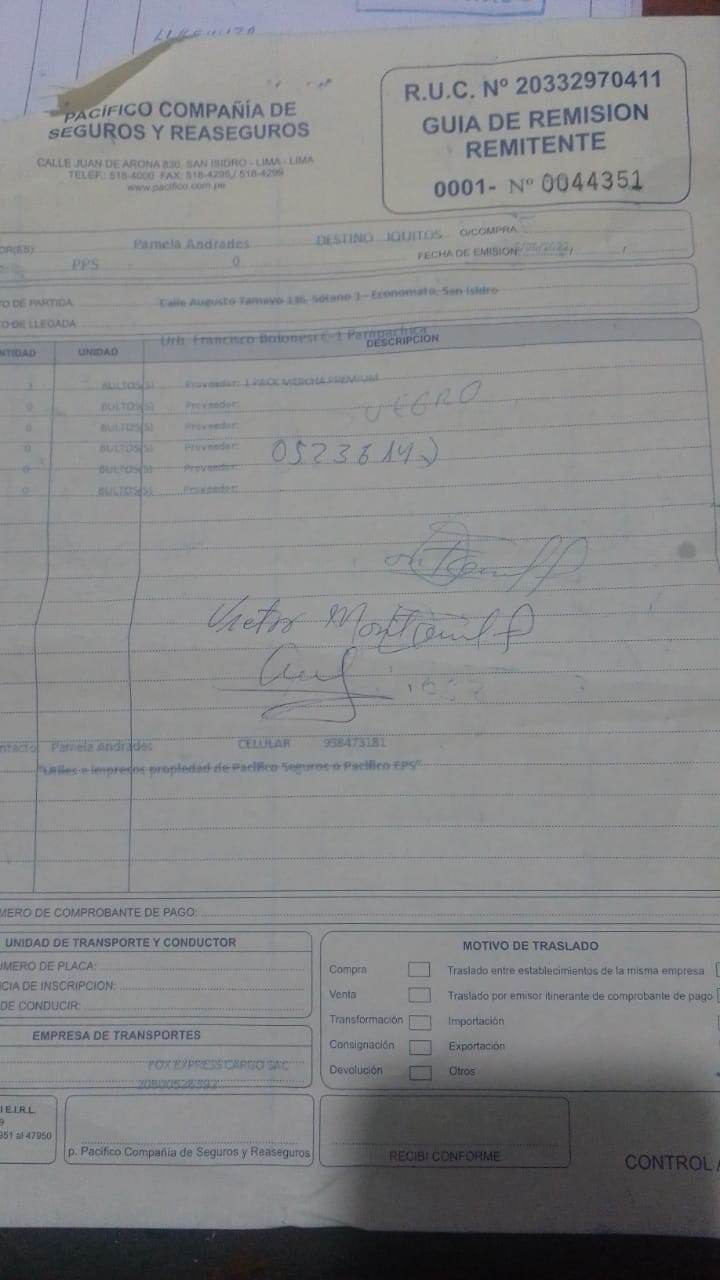 PACÍFICO COMPAÑÍA DE
SEGUROS Y REASEGUROS
CALLE JUAN DE ARONA 830, SAN ISIDRO - LIMA - LIMA
TELEF.: 518-4000 FAX: 518-4295 / 518-4299
www.pacifico.com.pe
R.U.C. Nº 20332970411
GUIA DE REMISION
REMITENTE
0001- Nº 0044351
OR(ES) Pamela Andrades DESTINO IQUITOS O/COMPRA
PPS 0 FECHA DE EMISION:
TO DE PARTIDA Calle Augusto Tamayo 136, Sótano 1 - Economato, San Isidro
TO DE LLEGADA
Urb. Francisco Bolonesi C-1
NTIDAD UNIDAD DESCRIPCION
1 BULTOS(S) Proveedor: 1 PACK MERCHA PREMIUM
0 BULTOS(S) Proveedor:
0 BULTOS(S) Proveedor:
0 BULTOS(S) Proveedor:
0 BULTOS(S) Proveedor:
0 BULTOS(S) Proveedor:
Victor
ntacto Pamela Andrades CELULAR 998473181
"Utiles e impresos propiedad de Pacífico Seguros o Pacífico EPS"
MERO DE COMPROBANTE DE PAGO:
UNIDAD DE TRANSPORTE Y CONDUCTOR
MERO DE PLACA:
CIA DE INSCRIPCION:
DE CONDUCIR:
EMPRESA DE TRANSPORTES
FOX EXPRESS CARGO SAC
MOTIVO DE TRASLADO
Compra Traslado entre establecimientos de la misma empresa
Venta Traslado por emisor itinerante de comprobante de pago
Transformación Importación
Consignación Exportación
Devolución Otros
I E.I.R.L.
9
951 al 47950
p. Pacífico Compañía de Seguros y Reaseguros
RECIBI CONFORME
CONTROL